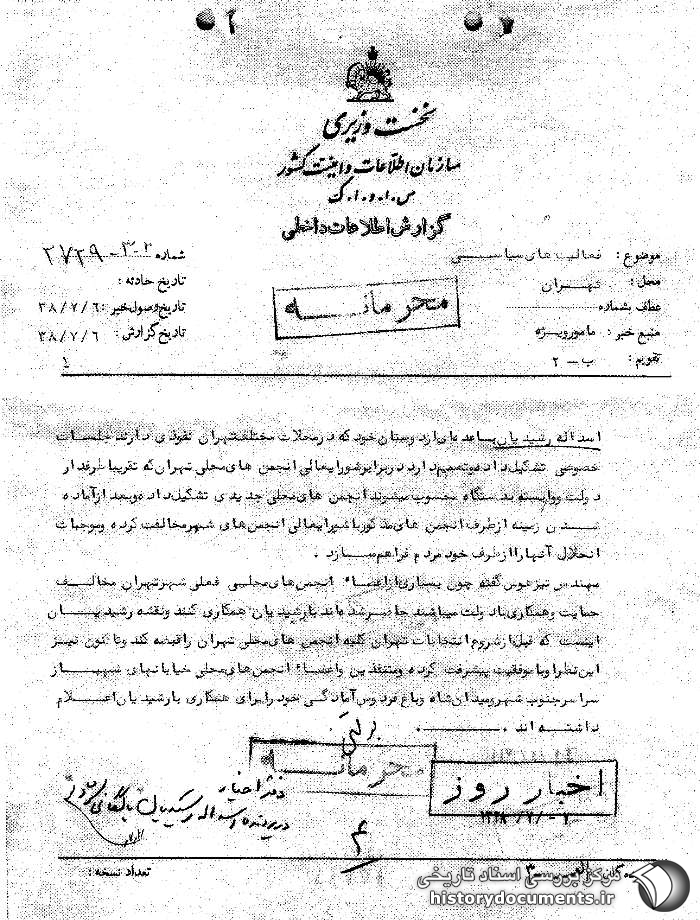 نخست وزیری
سازمان اطلاعات و امنیت کشور
س.ا.و.ا.ک
گزارش اطلاعات داخلی
موضوع : فعالیت های سیاسی
محل : تهران
عطف بشماره
منبع خبر : مامور ویژه
تقویم : ب - ۲
شماره ۲۷۲۹ - ۳۰۲
تاریخ حادثه :
تاریخ وصول خبر : ۳۸/۷/۶
تاریخ گزارش : ۳۸/۷/۶
۱
محرمانه
اسداله رشیدیان با عده ای از دوستان خود که در محلات مختلف تهران نفوذی دارند جلسات
خصوصی تشکیل داده و تصمیم دارد در برابر شورایعالی انجمن های محلی تهران که تقریبا طرفدار
دولت و وابسته بدستگاه محسوب میشوند انجمن های محلی جدیدی تشکیل داده و بعد از آماده
شدن زمینه از طرف انجمن های مذکور با شورایعالی انجمن های شهر مخالفت کرده و موجبات
انحلال آنها را از طرف خود مردم فراهم سازد .
مهندس نیز گفته چون بسیاری از اعضاء انجمن های محلی فعلی شهر تهران مخالف
حمایت و همکاری با دولت میباشند حاضر شده اند با رشیدیان همکاری کنند و نقشه رشیدیان
اینست که قبل از شروع انتخابات تهران کلیه انجمن های محلی تهران را قبضه کند و تا کنون نیز
این نظر او با موفقیت پیشرفت کرده و متنفذین و اعضاء انجمن های محلی خیابانهای شهباز
سراسر جنوب شهر و میدان شاه و باغ فردوس آمادگی خود را برای همکاری با رشیدیان اعلام
داشته اند .
محرمانه
اخبار روز
دفتر اخبار
در پرونده اسداله رشیدیان بایگانی شود
۴
تعداد نسخه :
مرکز بررسی اسناد تاریخی
historydocuments.ir